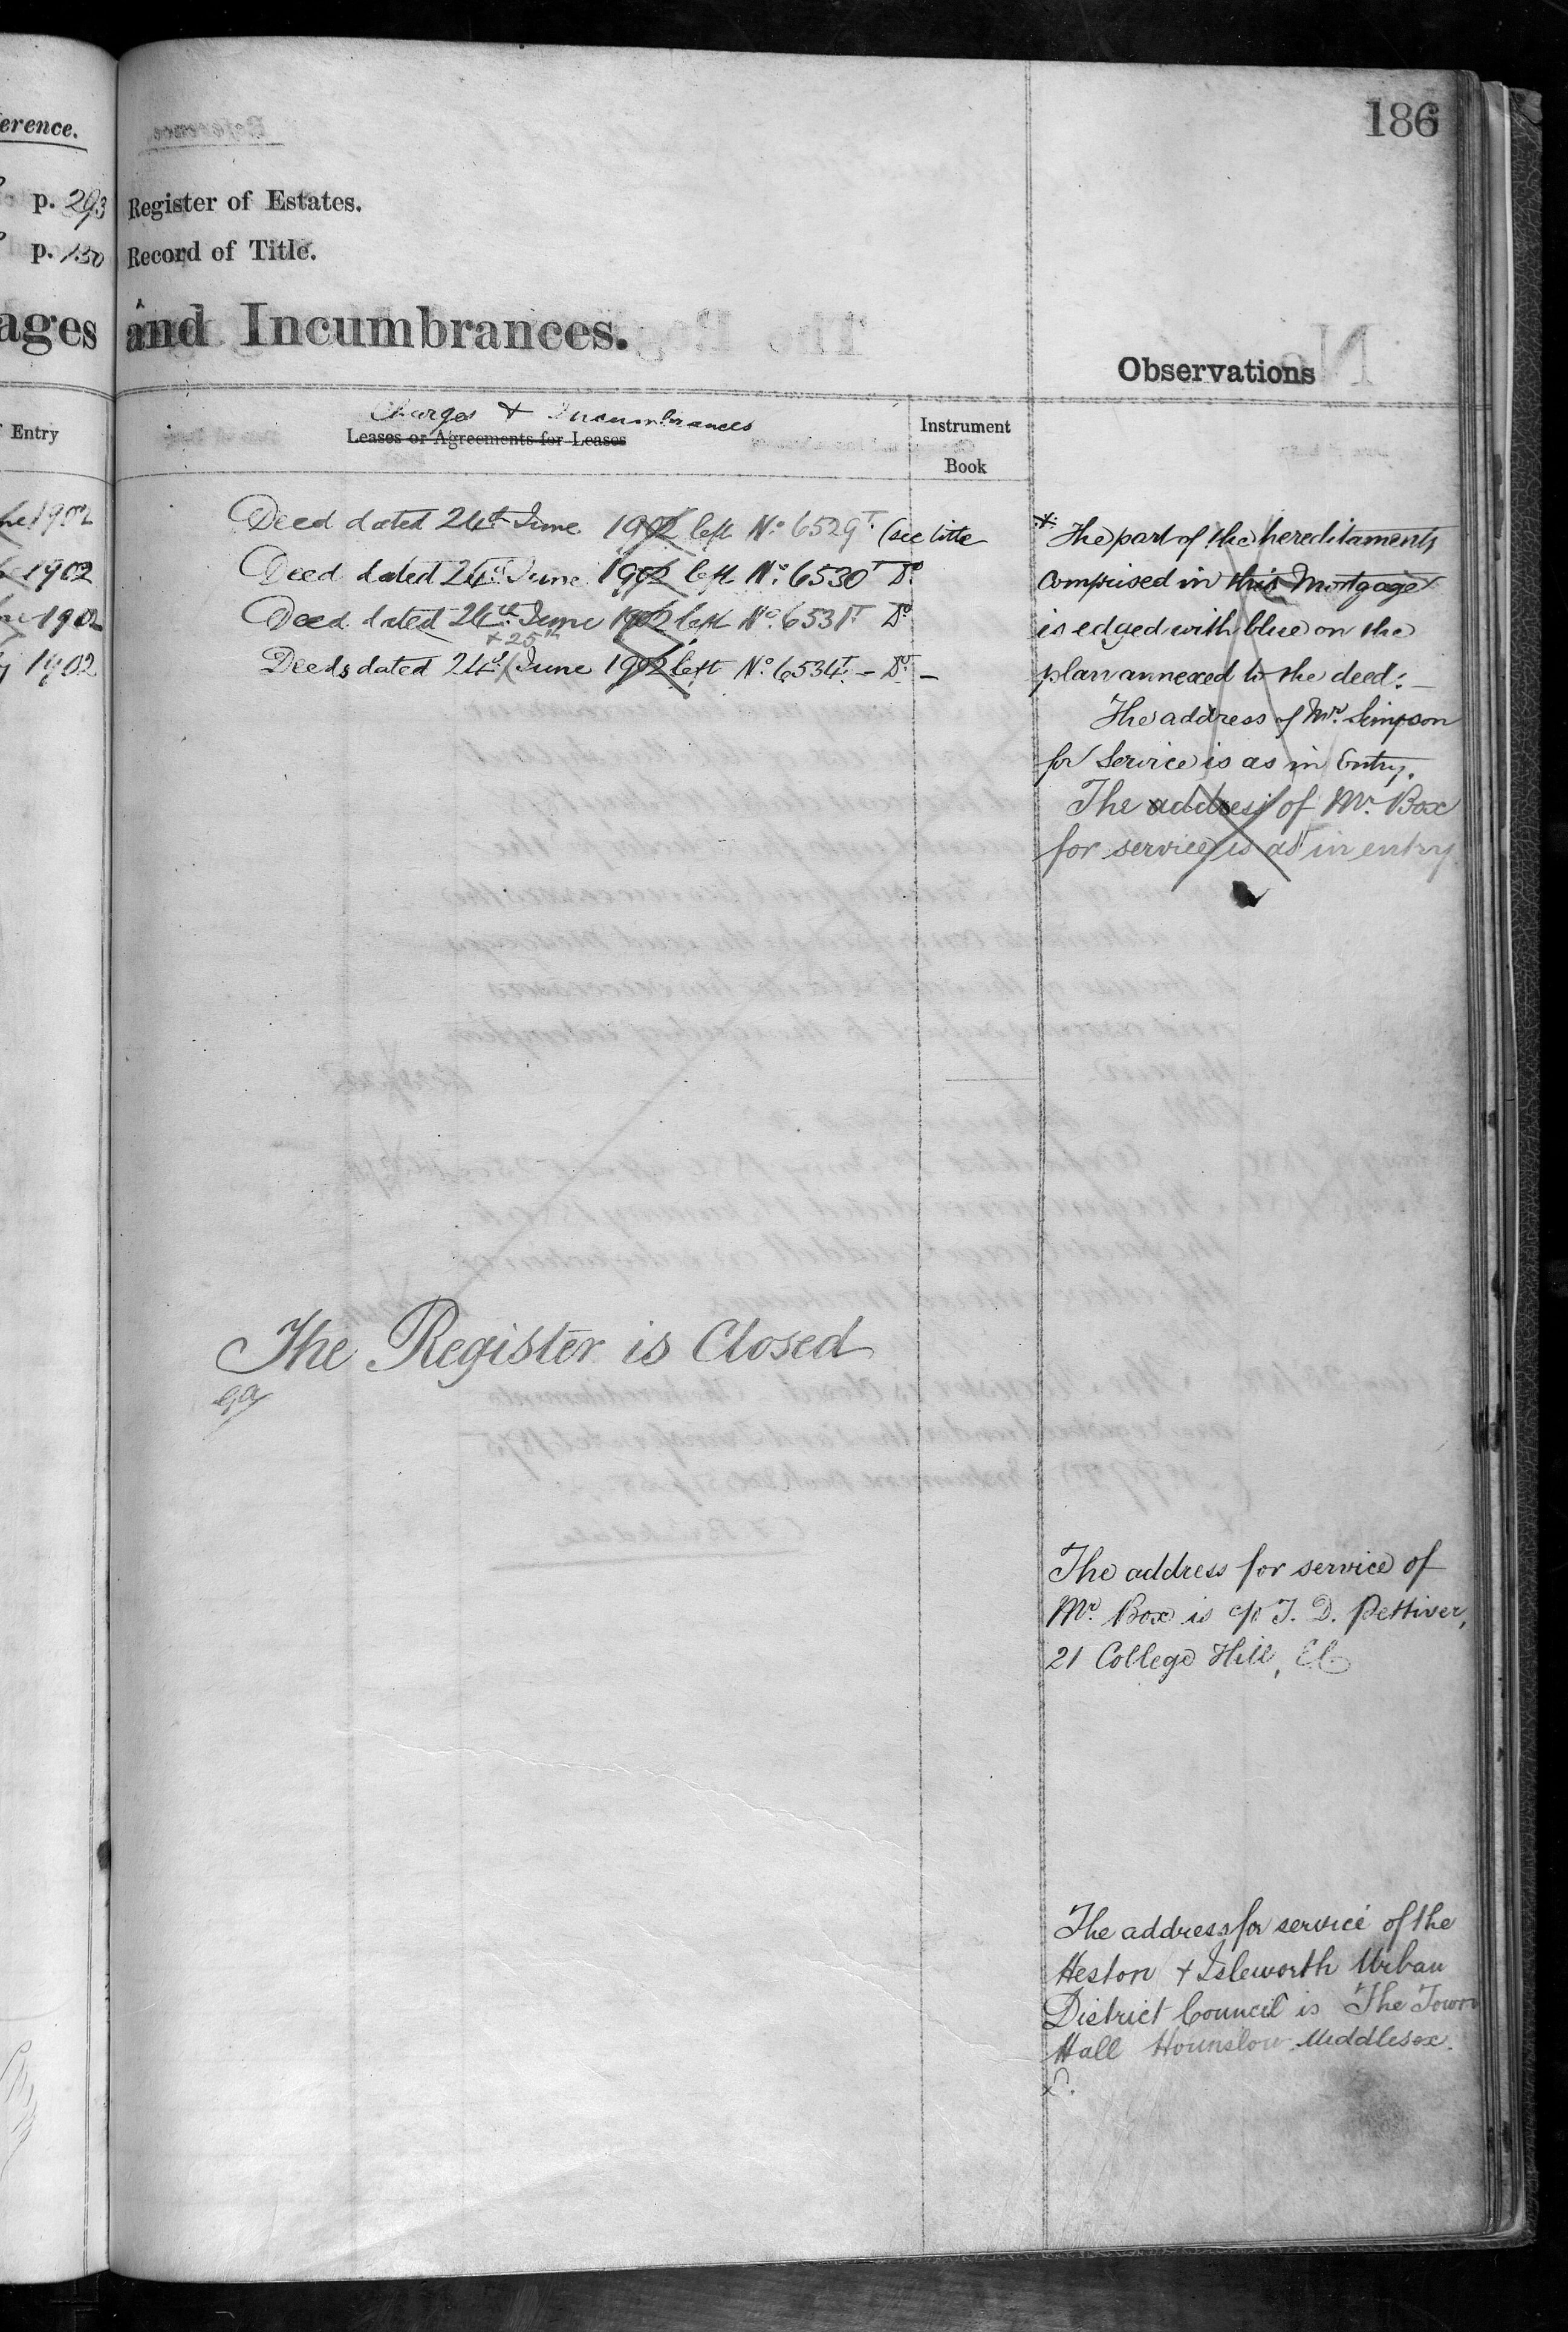 186
erence.
p. 293
p. 130
ages
Entry
1902
1902
1902
1902
Register of Estates.
Record of Title.
and Incumbrances.
Observations
Charges & Incumbrances
Leases or Agreements for Leases
Instrument
Book
Deed dated 24th June 1902 left No. 6529T. (see title
Deed dated 24th June 1902 left No. 6530T Do.
Deed dated 24th June 1902 left No. 6531T Do.
+ 25th
Deeds dated 24th June 1902 left No. 6534T. – Do. –
* The part of the hereditaments
comprised in this Mortgage
is edged with blue on the
plan annexed to the deed: –
The address of Mr. Simpson
for Service is as in Entry.
The address of Mr. Box
for service is as in entry
The Register is Closed
The address for service of
Mr. Box is c/o T. D. Pettiver,
21 College Hill, E.C.
The address for service of the
Heston + Isleworth Urban
District Council is The Town
Hall Hounslow Middlesex.